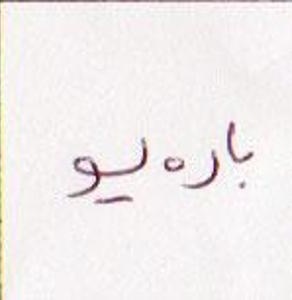 باره لیو